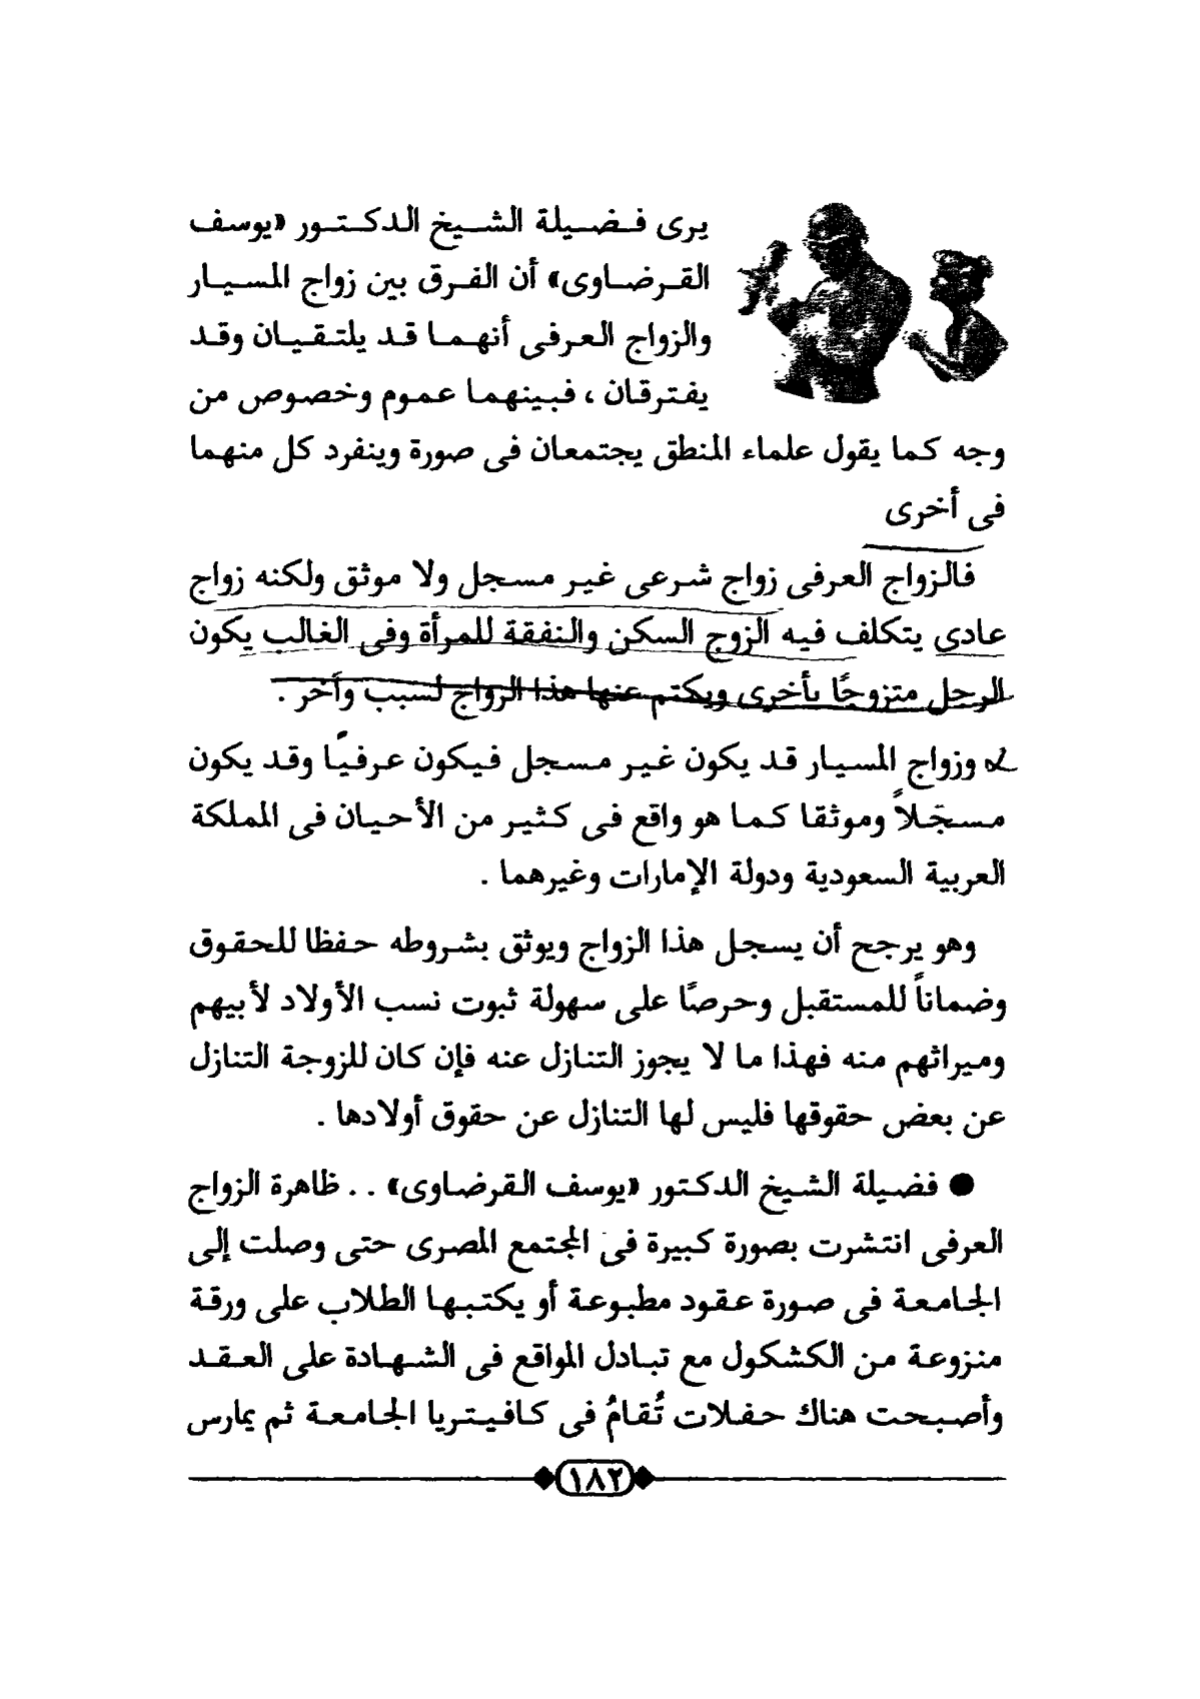 يرى فضيلة الشيخ الدكتور «يوسف
القرضاوى» أن الفرق بين زواج المسيار
والزواج العرفى أنهما قد يلتقيان وقد
يفترقان ، فبينهما عموم وخصوص من
وجه كما يقول علماء المنطق يجتمعان فى صورة وينفرد كل منهما
فى أخرى
فالزواج العرفى زواج شرعى غير مسجل ولا موثق ولكنه زواج
عادي يتكلف فيه الزوج السكن والنفقة للمرأة وفى الغالب يكون
الرجل متزوجًا بأخرى ويكتم عنها هذا الزواج لسبب وآخر .
وزواج المسيار قد يكون غير مسجل فيكون عرفيًا وقد يكون
مسجّلاً وموثقا كما هو واقع فى كثير من الأحيان فى المملكة
العربية السعودية ودولة الإمارات وغيرهما .
وهو يرجح أن يسجل هذا الزواج ويوثق بشروطه حفظا للحقوق
وضماناً للمستقبل وحرصًا على سهولة ثبوت نسب الأولاد لأبيهم
وميراثهم منه فهذا ما لا يجوز التنازل عنه فإن كان للزوجة التنازل
عن بعض حقوقها فليس لها التنازل عن حقوق أولادها .
● فضيلة الشيخ الدكتور «يوسف القرضاوى» . . ظاهرة الزواج
العرفى انتشرت بصورة كبيرة فى المجتمع المصرى حتى وصلت إلى
الجامعة فى صورة عقود مطبوعة أو يكتبها الطلاب على ورقة
منزوعة من الكشكول مع تبادل المواقع فى الشهادة على العقد
وأصبحت هناك حفلات تُقامُ فى كافيتريا الجامعة ثم يمارس
١٨٢